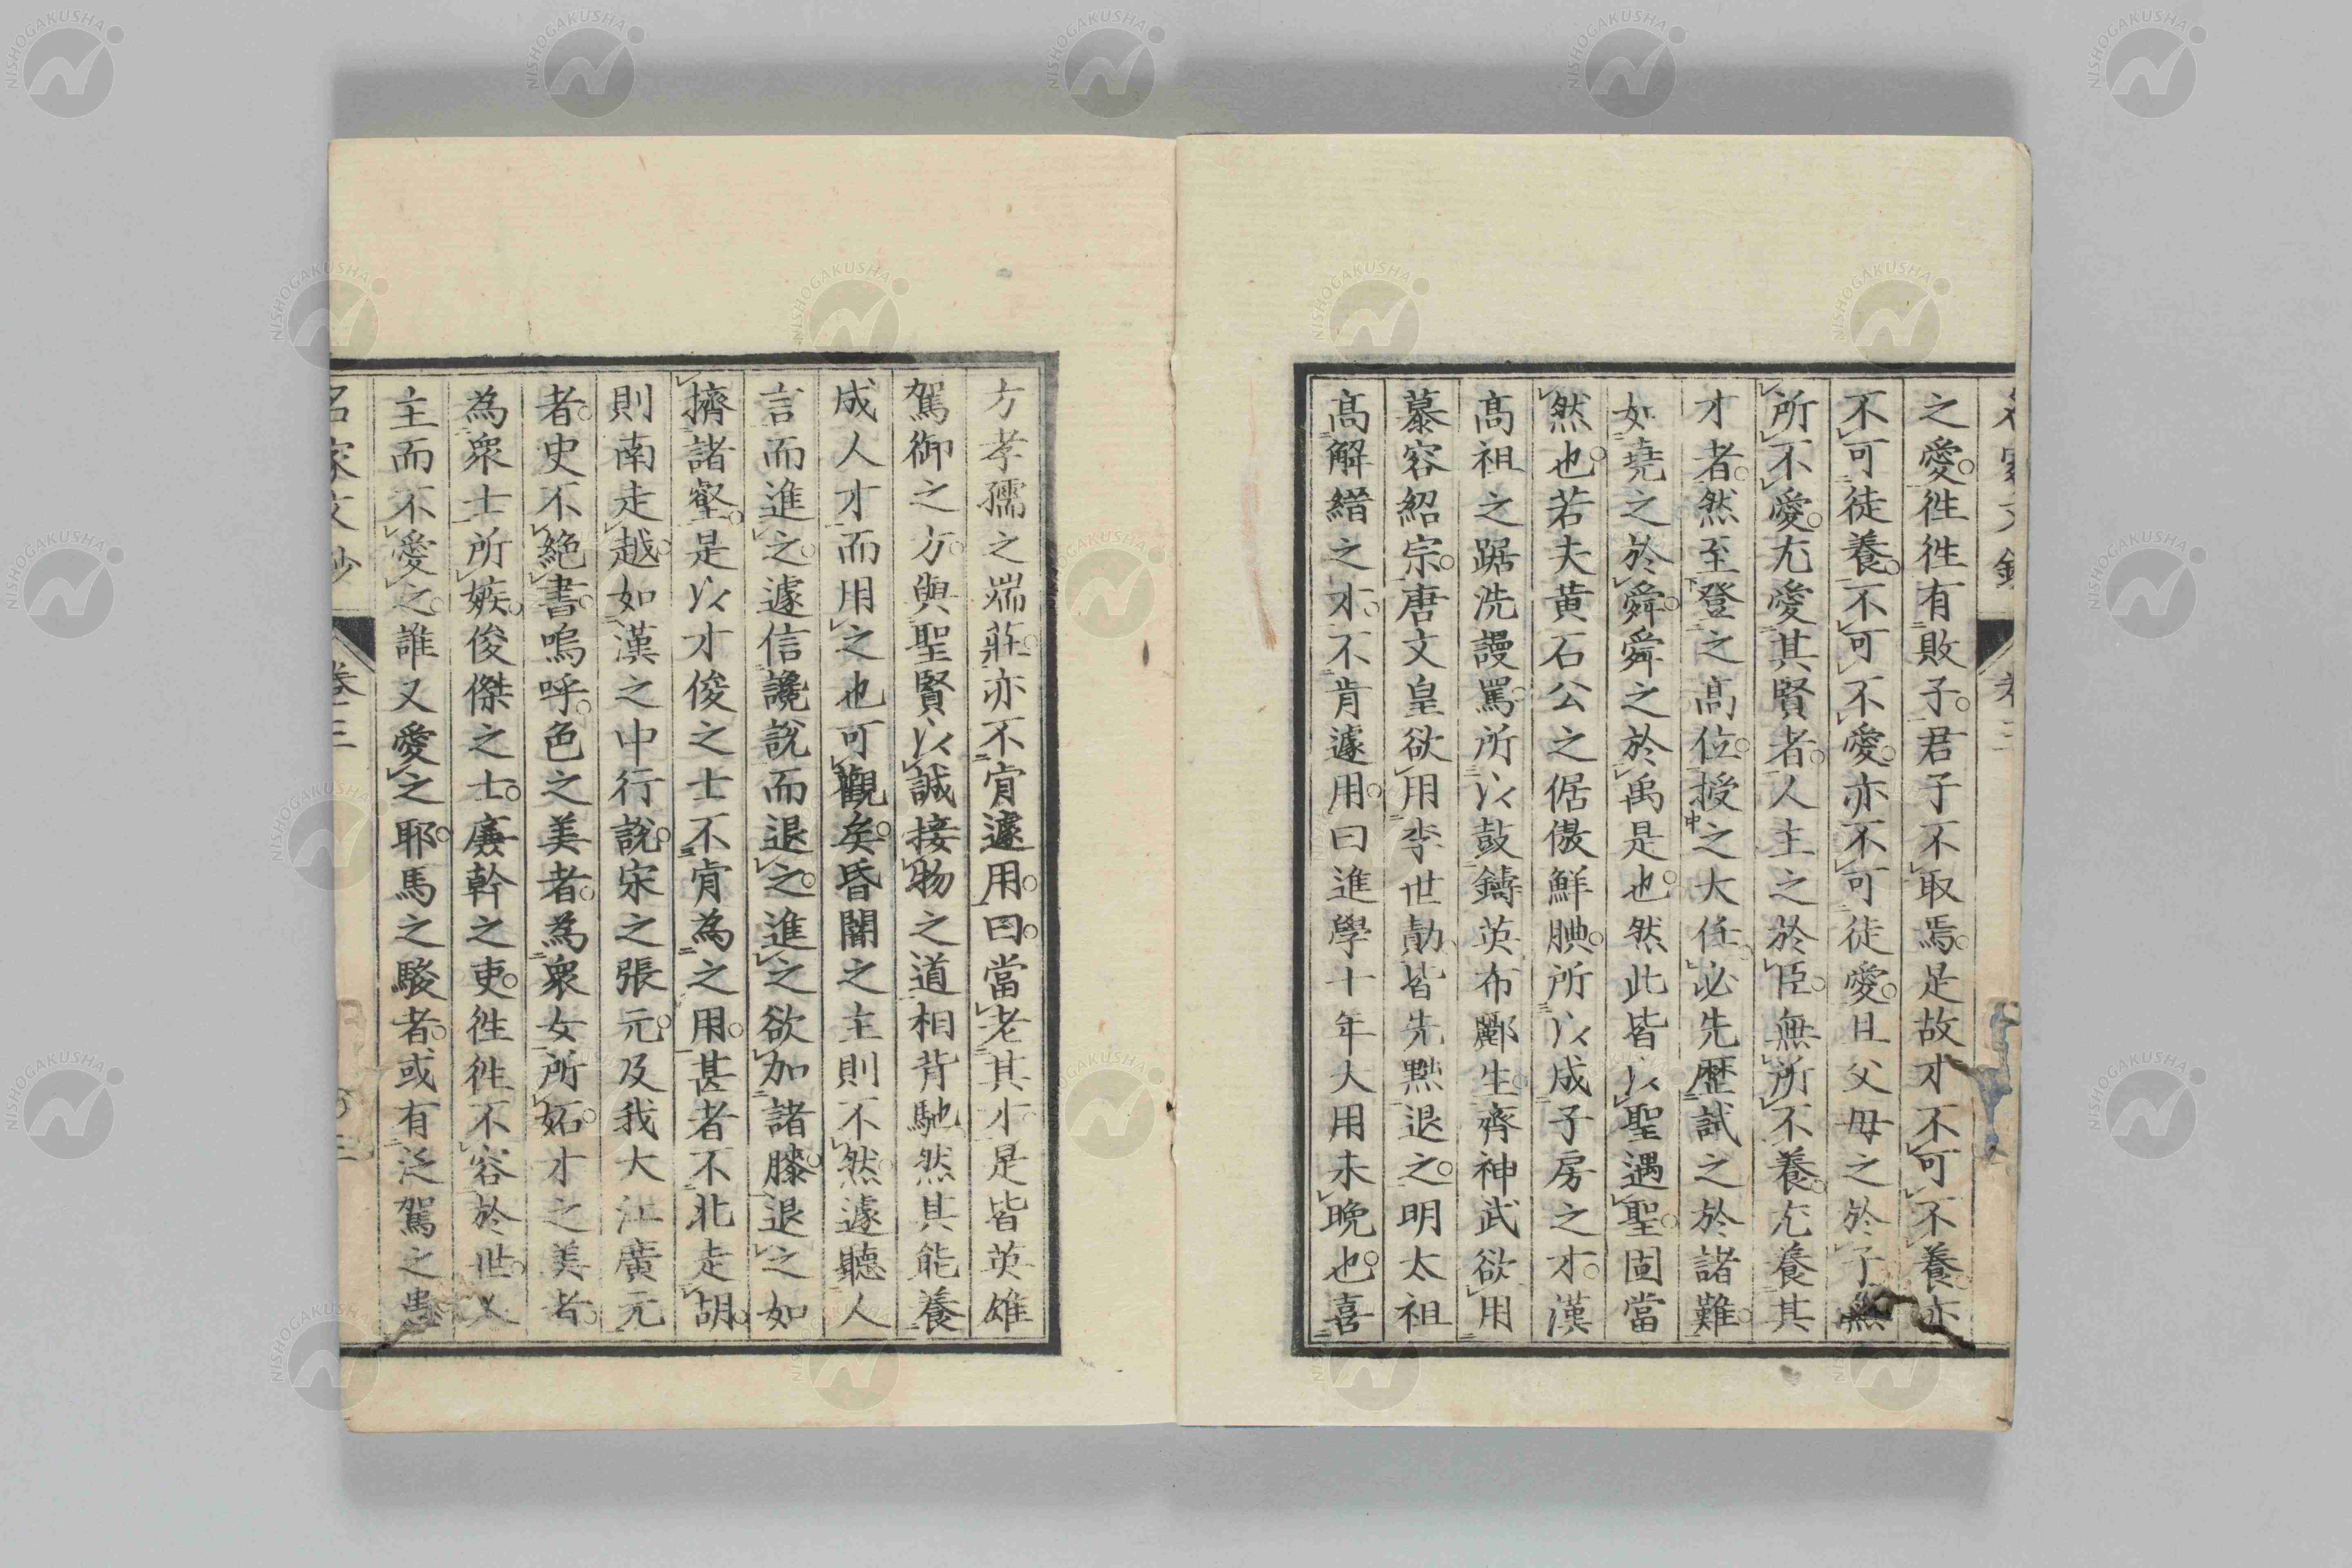 之愛徃徃有敗子君子不取焉是故才不可不養亦
不可徒養不可不愛亦不可徒愛且父母之於子無
所不愛尤愛其賢者人主之於臣無所不養尤養其
才者然至登之高位授之大任必先歴試之於諸難
如堯之於舜舜之於禹是也然此皆以聖遇聖固當
然也若夫黄石公之倨傲鮮腆所以成子房之才漢
高祖之踞洗謾罵所以鼓鑄英布酈生齊神武欲用
慕容紹宗唐文皇欲用李世勣皆先黜退之明太祖
高解縉之才不肯遽用曰進學十年大用未晩也喜
方孝孺之端莊亦不肯遽用曰當老其才是皆英雄
駕御之方與聖賢以誠接物之道相背馳然其能養
成人才而用之也可觀矣昏闇之主則不然遽聽人
言而進之遽信讒說而退之進之欲加諸膝退之如
擠諸壑是以才俊之士不肯為之用甚者不北走胡
則南走越如漢之中行說宋之張元及我大江廣元
者史不絶書嗚呼色之美者為衆女所妬才之美者
為衆士所嫉俊傑之士廉幹之吏徃徃不容於世人
主而不愛之誰又愛之耶馬之駿者或有泛駕之患
名家文鈔 卷三
NISHOGAKUSHA